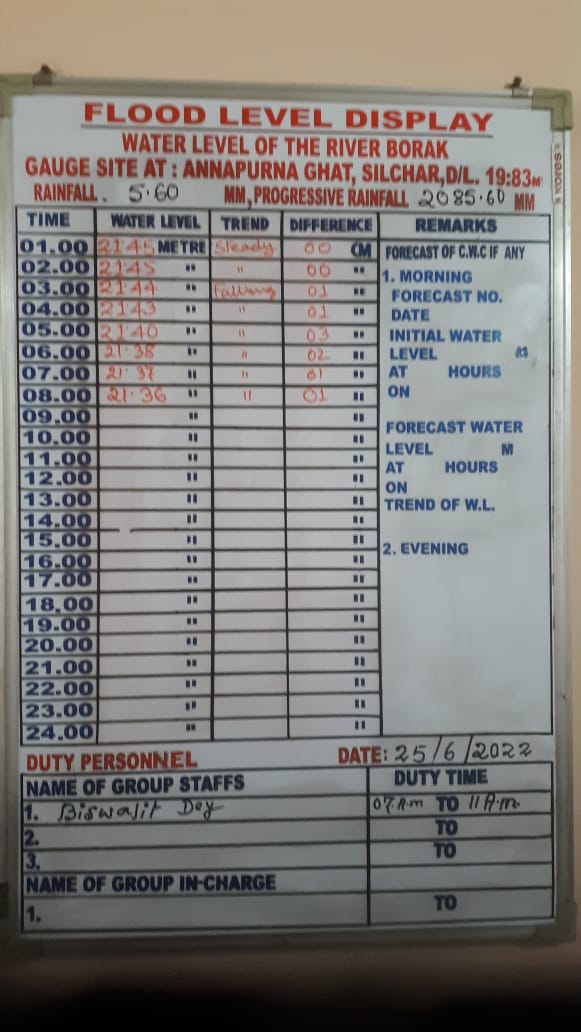 FLOOD LEVEL DISPLAY
WATER LEVEL OF THE RIVER BORAK
GAUGE SITE AT : ANNAPURNA GHAT, SILCHAR,D/L. 19:83M
RAINFALL. 5.60 MM,PROGRESSIVE RAINFALL 2085.60 MM
TIME WATER LEVEL TREND DIFFERENCE REMARKS
01.00 21.45 METRE Steady 00 CM FORECAST OF C.W.C IF ANY
02.00 21.45 " " 00 " 1. MORNING
03.00 21.44 " Falling 01 " FORECAST NO.
04.00 21.43 " " 01 " DATE
05.00 21.40 " " 03 " INITIAL WATER
06.00 21.38 " " 02 " LEVEL M
07.00 21.37 " " 01 " AT HOURS
08.00 21.36 " " 01 " ON
09.00 " "
10.00 " " FORECAST WATER
11.00 " " LEVEL M
12.00 " " AT HOURS
13.00 " " ON
14.00 " " TREND OF W.L.
15.00 " "
16.00 " " 2. EVENING
17.00 " "
18.00 " "
19.00 " "
20.00 " "
21.00 " "
22.00 " "
23.00 " "
24.00 " "
DUTY PERSONNEL DATE: 25/6/2022
NAME OF GROUP STAFFS DUTY TIME
1. Biswajit Dey 07.A.m TO 11 A.m.
2. TO
3. TO
NAME OF GROUP IN-CHARGE
1. TO